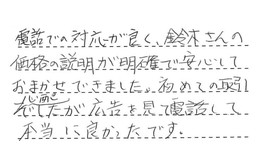 電話での対応が良く、鈴木さんの
価格の説明が明確で安心して
おまかせできました。初めての取引
でしたが広告を見て電話して
本当に良かったです。